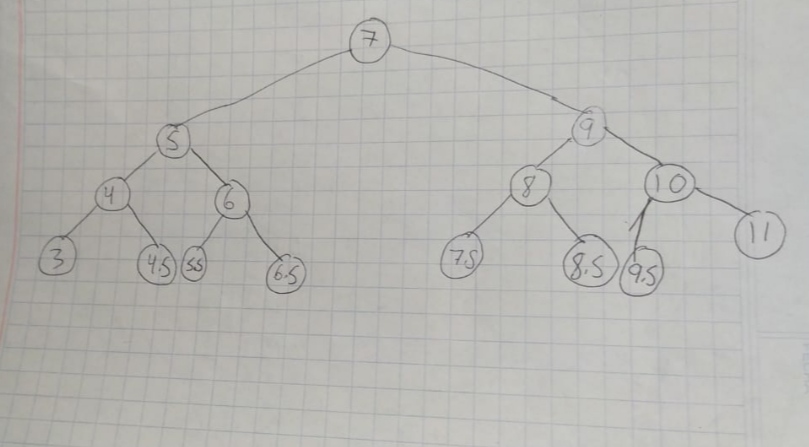 7
5 9
4 6 8 10
3 4.5 55 6.5 7.5 8.5 9.5 11